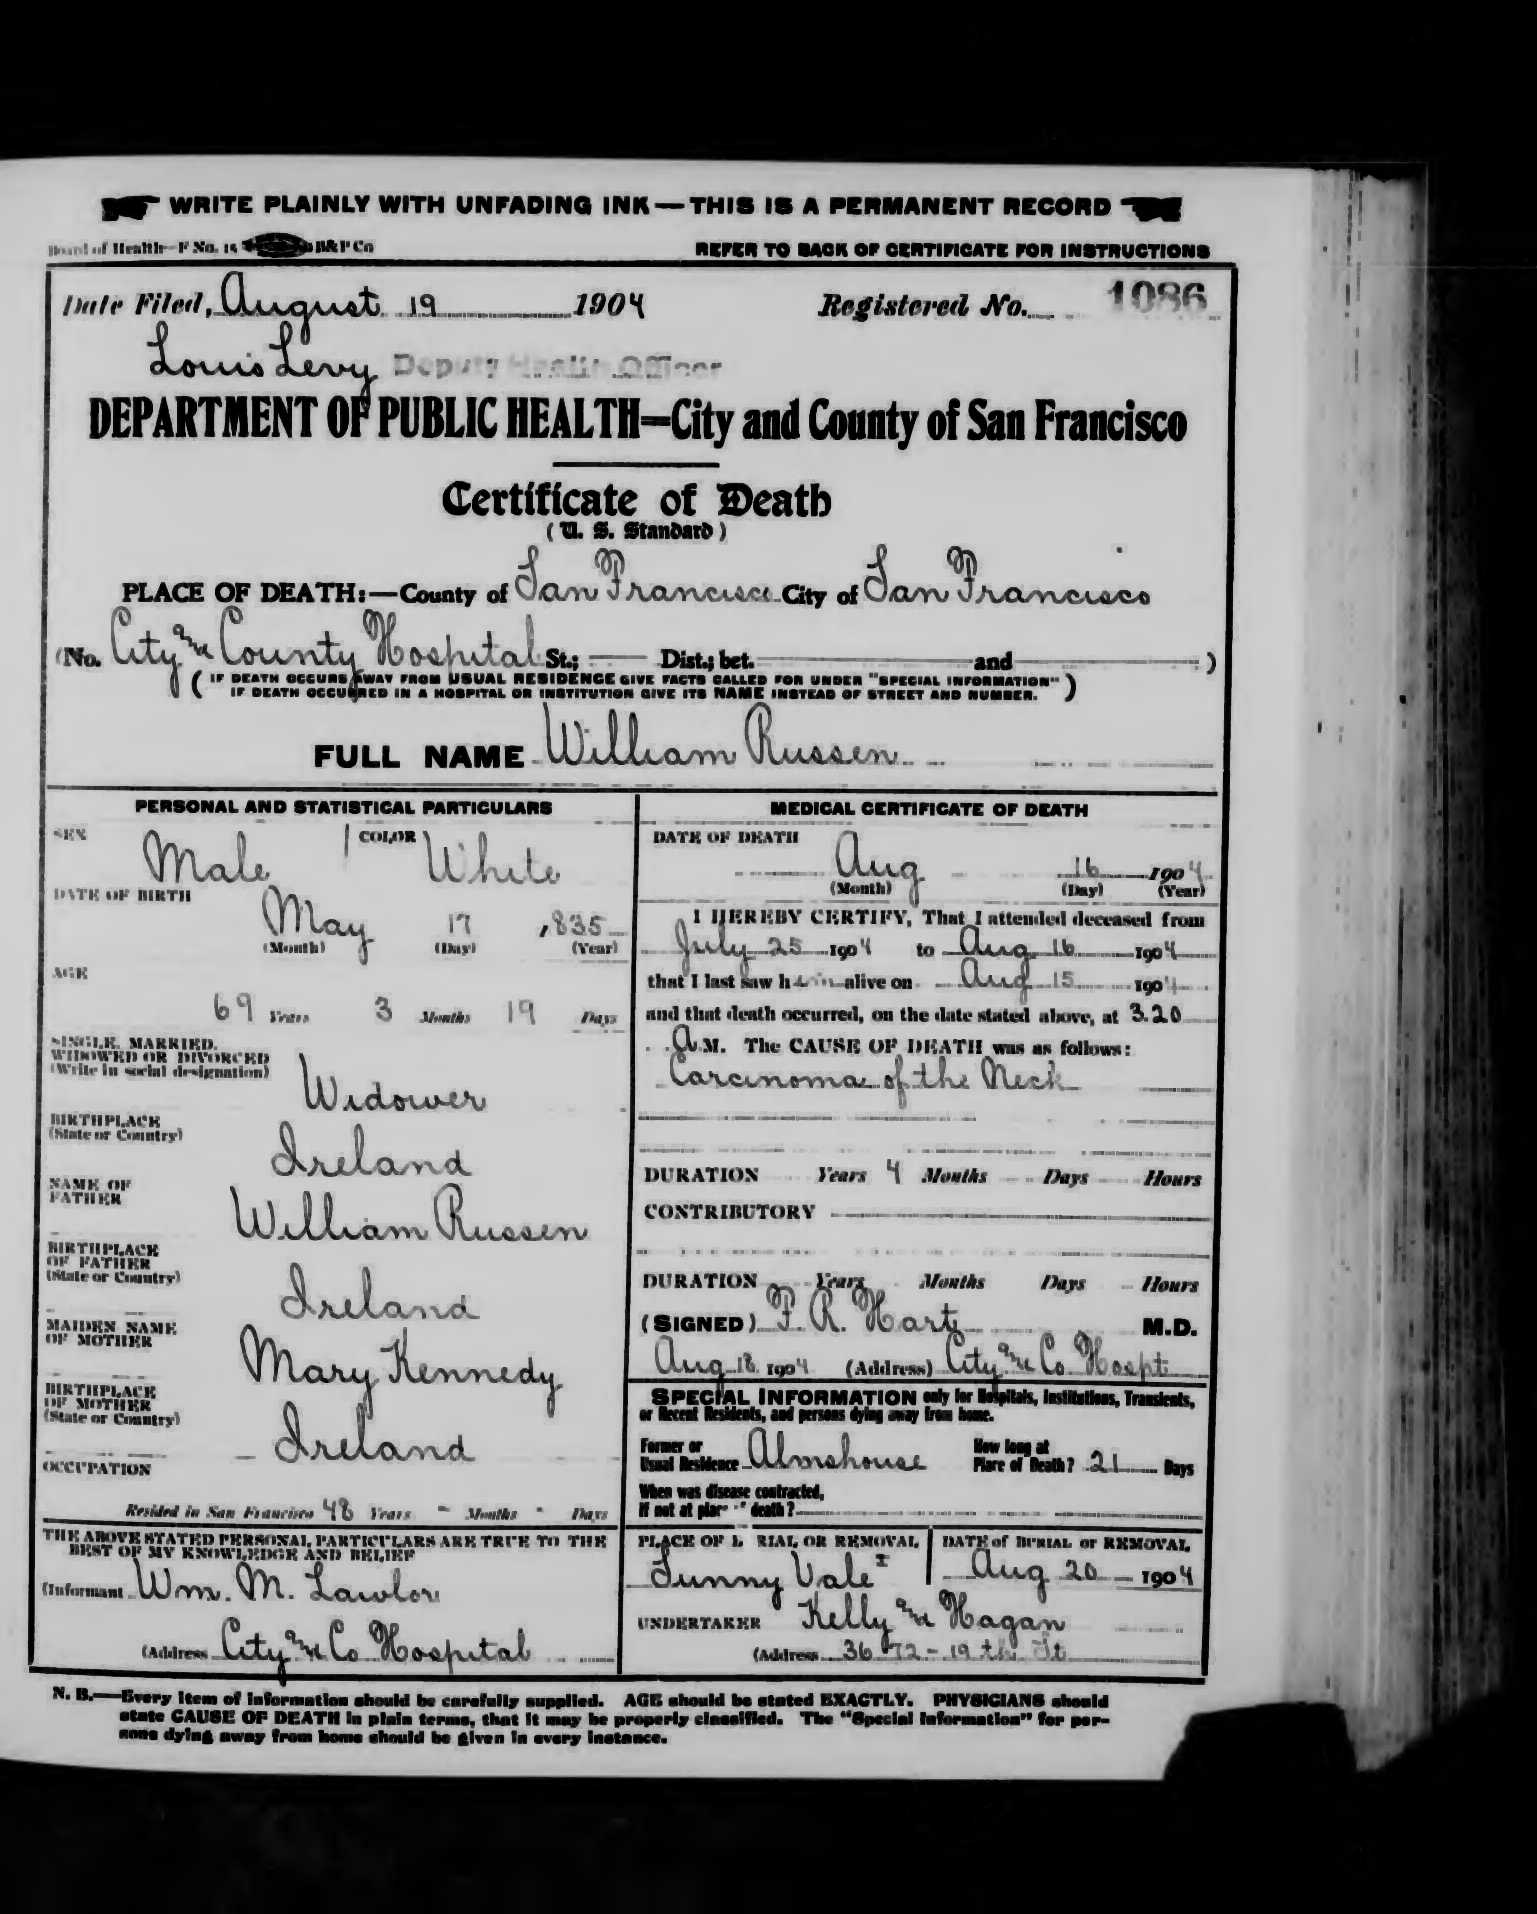 WRITE PLAINLY WITH UNFADING INK—THIS IS A PERMANENT RECORD
Board of Health—F No. 15 B&P Co
REFER TO BACK OF CERTIFICATE FOR INSTRUCTIONS
Date Filed, August 19 1904 Registered No. 1086
Louis Levy Deputy Health Officer
DEPARTMENT OF PUBLIC HEALTH=City and County of San Francisco
Certificate of Death
(U. S. Standard)
PLACE OF DEATH:—County of San Francisco City of San Francisco
(No. City and County Hospital St.; — Dist.; bet. and )
( IF DEATH OCCURS AWAY FROM USUAL RESIDENCE GIVE FACTS CALLED FOR UNDER "SPECIAL INFORMATION"
IF DEATH OCCURRED IN A HOSPITAL OR INSTITUTION GIVE ITS NAME INSTEAD OF STREET AND NUMBER. )
FULL NAME William Russen
PERSONAL AND STATISTICAL PARTICULARS
SEX Male COLOR White
DATE OF BIRTH
May 17 ,835
(Month) (Day) (Year)
AGE
69 Years 3 Months 19 Days
SINGLE, MARRIED,
WIDOWED OR DIVORCED
(Write in social designation)
Widower
BIRTHPLACE
(State or Country)
Ireland
NAME OF
FATHER
William Russen
BIRTHPLACE
OF FATHER
(State or Country)
Ireland
MAIDEN NAME
OF MOTHER
Mary Kennedy
BIRTHPLACE
OF MOTHER
(State or Country)
Ireland
OCCUPATION
Resided in San Francisco 48 Years - Months - Days
THE ABOVE STATED PERSONAL PARTICULARS ARE TRUE TO THE
BEST OF MY KNOWLEDGE AND BELIEF
(Informant Wm. M. Lawlor
(Address City and Co Hospital
MEDICAL CERTIFICATE OF DEATH
DATE OF DEATH
Aug 16 1904
(Month) (Day) (Year)
I HEREBY CERTIFY, That I attended deceased from
July 25 1904 to Aug 16 1904
that I last saw him alive on Aug 15 1904
and that death occurred, on the date stated above, at 3.20
A.M. The CAUSE OF DEATH was as follows:
Carcinoma of the Neck
DURATION Years 4 Months Days Hours
CONTRIBUTORY
DURATION Years Months Days Hours
(SIGNED) F. R. Hart M.D.
Aug 18 1904 (Address) City and Co Hospt
SPECIAL INFORMATION only for Hospitals, Institutions, Transients,
or Recent Residents, and persons dying away from home.
Former or
Usual Residence Almshouse
How long at
Place of Death? 21 Days
When was disease contracted,
If not at place of death?
PLACE OF BURIAL OR REMOVAL
Sunny Vale
DATE of BURIAL or REMOVAL
Aug 20 1904
UNDERTAKER Kelly and Hagan
(Address 3672-19th St
N. B.—Every item of information should be carefully supplied. AGE should be stated EXACTLY. PHYSICIANS should
state CAUSE OF DEATH in plain terms, that it may be properly classified. The "Special Information" for per-
sons dying away from home should be given in every instance.